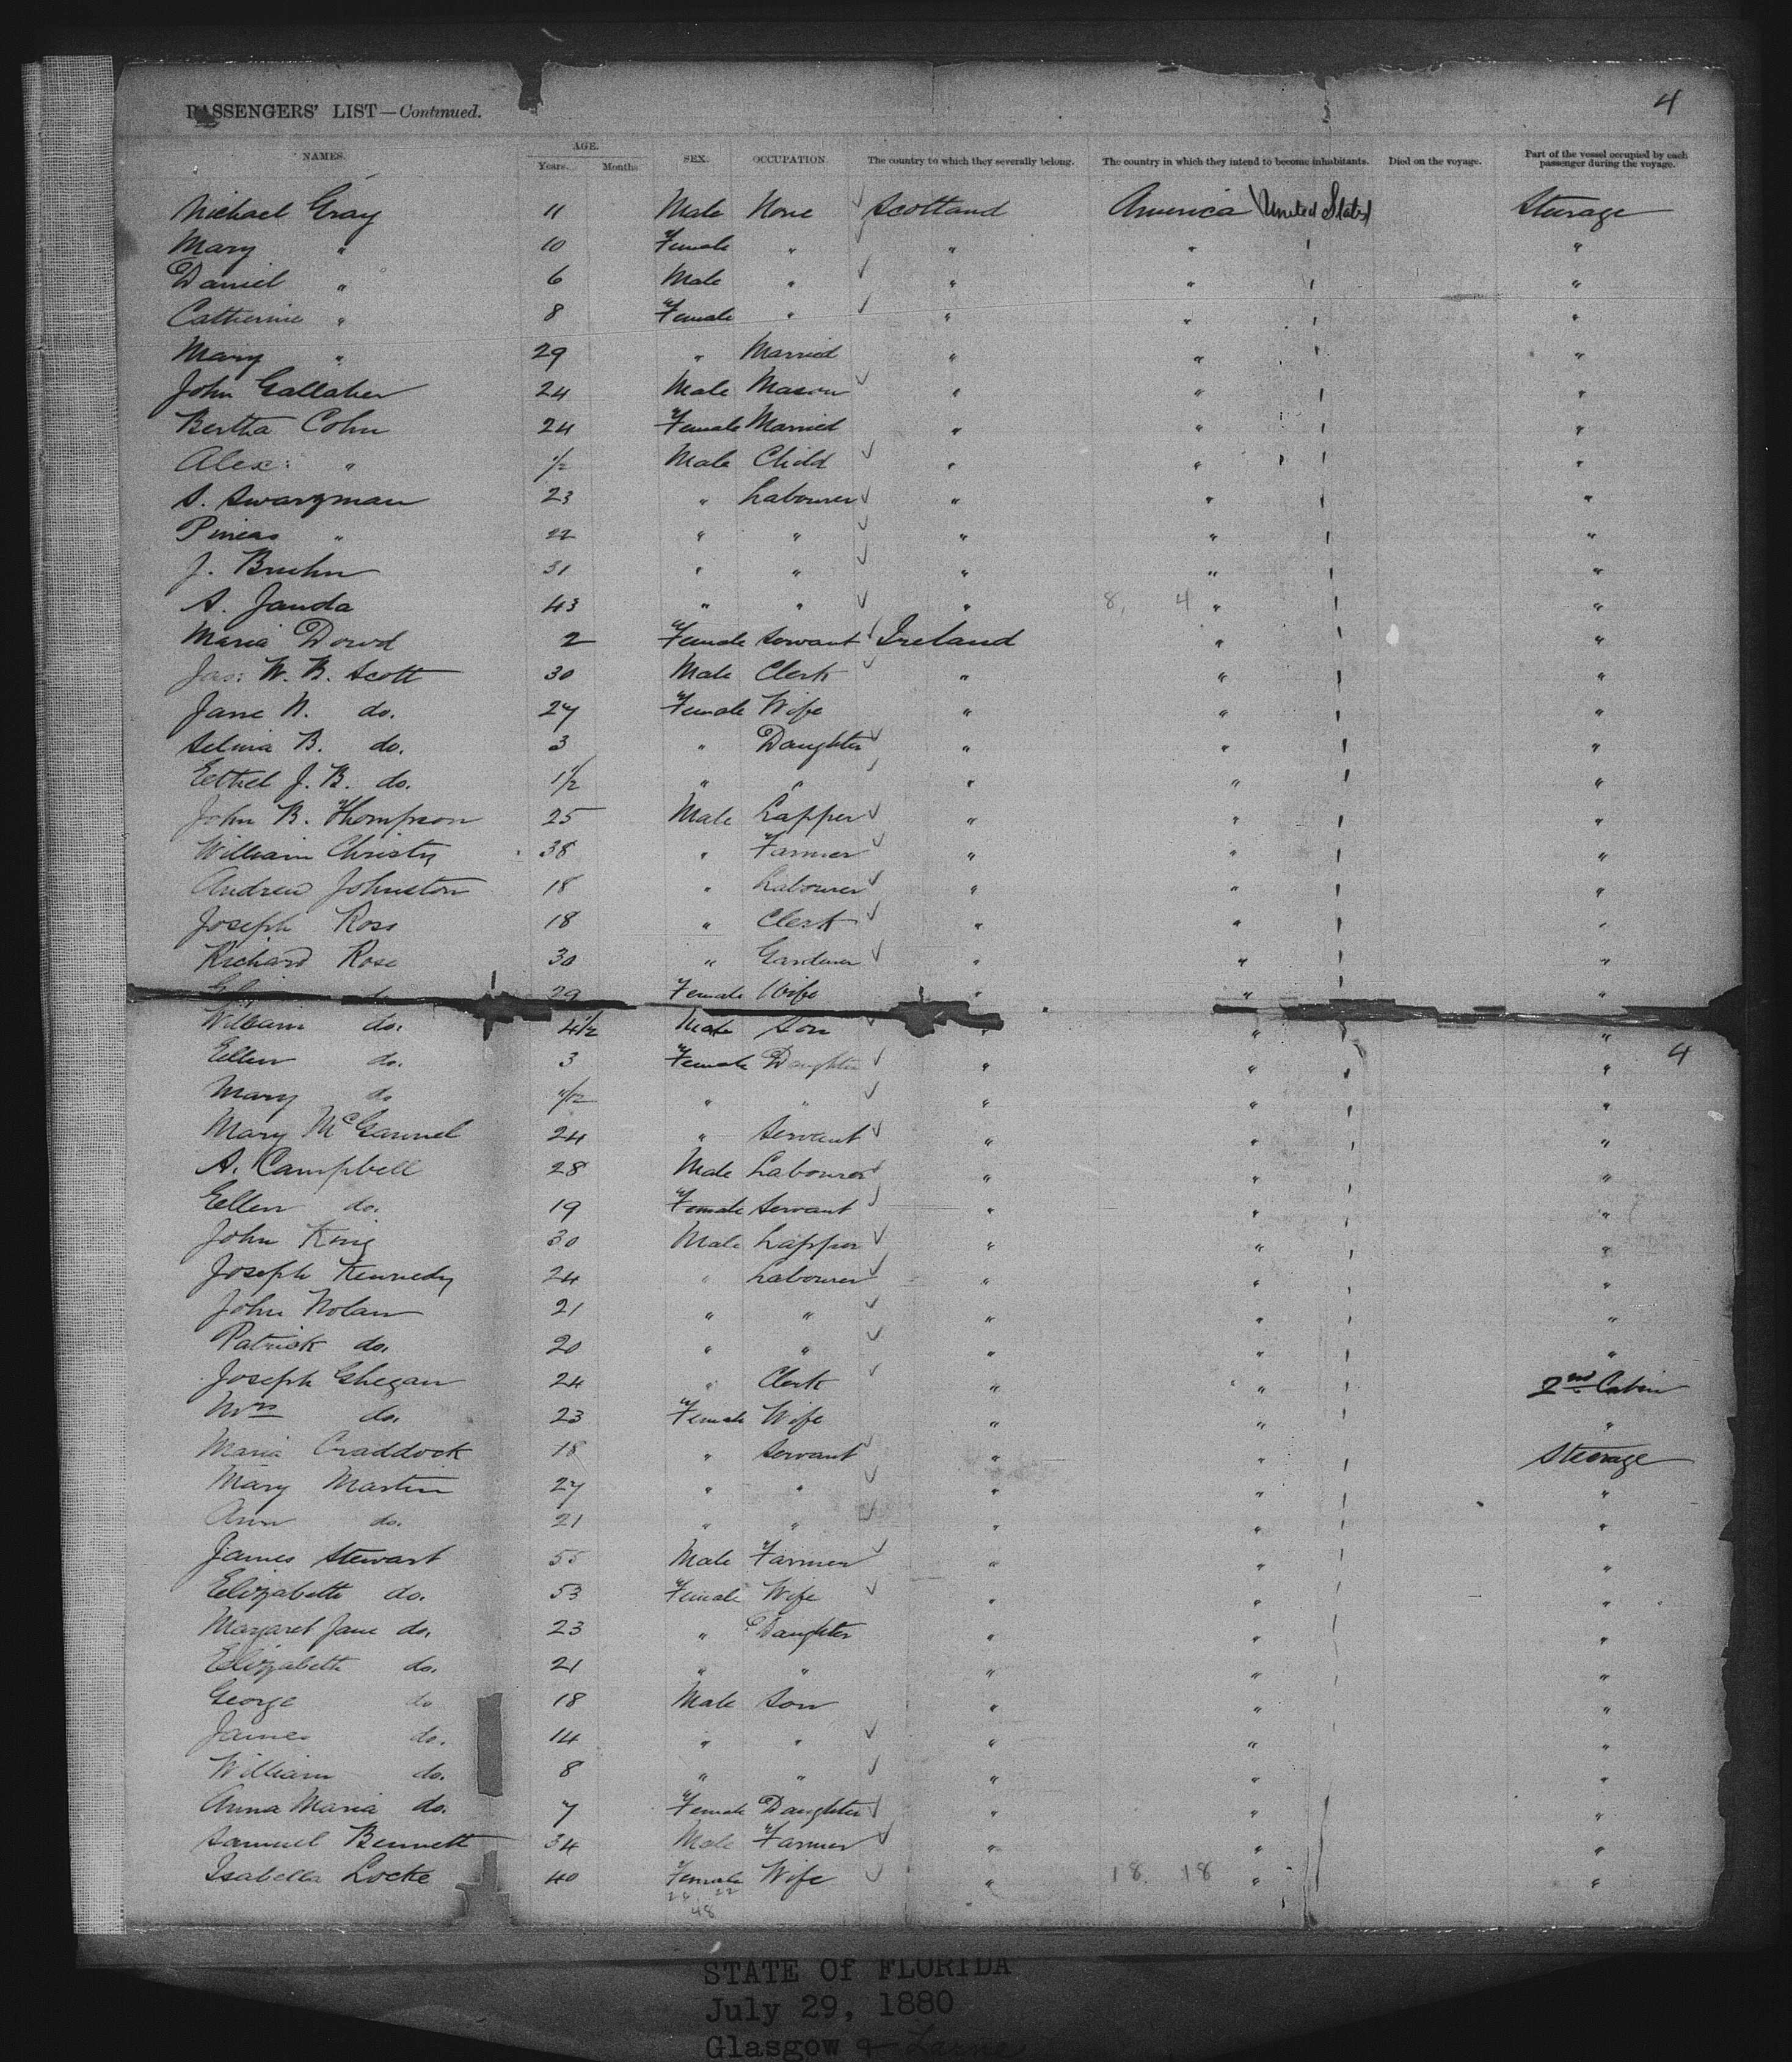 4
PASSENGERS' LIST—Continued.
NAMES. AGE. Years. Months SEX. OCCUPATION The country to which they severally belong. The country in which they intend to become inhabitants. Died on the voyage. Part of the vessel occupied by each passenger during the voyage.
Michael Gray 11 Male None Scotland America United States Steerage
Mary " 10 Female " " " "
Daniel " 6 Male " " " "
Catherine " 8 Female " " " "
Mary " 29 " Married " " "
John Gallaher 24 Male Mason " " "
Bertha Cohn 24 Female Married " " "
Alex: " 1/2 Male Child " " "
S. Swarzman 23 " Labourer " " "
Pineas " 22 " " " " "
J. Bruhn 31 " " " " "
A. Janda 43 " " " 8, 4 " "
Maria Dowd 2 Female Servant Ireland " "
Jas: W. B. Scott 30 Male Clerk " " "
Jane N. do. 27 Female Wife " " "
Selina B. do. 3 " Daughter " " "
Eethel J. B. do. 1 1/2 " " " " "
John B. Thompson 25 Male Lapper " " "
William Christy 38 " Farmer " " "
Andrew Johnston 18 " Labourer " " "
Joseph Ross 18 " Clerk " " "
Richard Rose 30 " Gardener " " "
29 Female Wife " " "
William do. 4 1/2 Male Son " " "
4
Ellen do. 3 Female Daughter " " "
Mary do " " " " "
Mary McGannel 24 " Servant " " "
A. Campbell 28 Male Labourer " " "
Ellen do. 19 Female Servant " " "
John King 30 Male Lapper " " "
Joseph Kennedy 24 " Labourer " " "
John Nolan 21 " " " " "
Patrick do. 20 " " " " "
Joseph Ghegan 24 " Clerk " " 2nd Cabin
Mrs do. 23 Female Wife " " "
Maria Craddock 18 " Servant " " Steerage
Mary Martin 27 " " " " "
Ann do. 21 " " " " "
James Stewart 55 Male Farmer " " "
Elizabeth do. 53 Female Wife " " "
Margaret Jane do. 23 " Daughter " " "
Elizabeth do. 21 " " " " "
George do 18 Male Son " " "
James do. 14 " " " " "
William do. 8 " " " " "
Anna Maria do. 7 Female Daughter " " "
Samuel Bennett 34 Male Farmer " " "
Isabella Locke 40 Female Wife " 18 18 " "
26 22
48
STATE Of FLORIDA
July 29, 1880
Glasgow & Larne